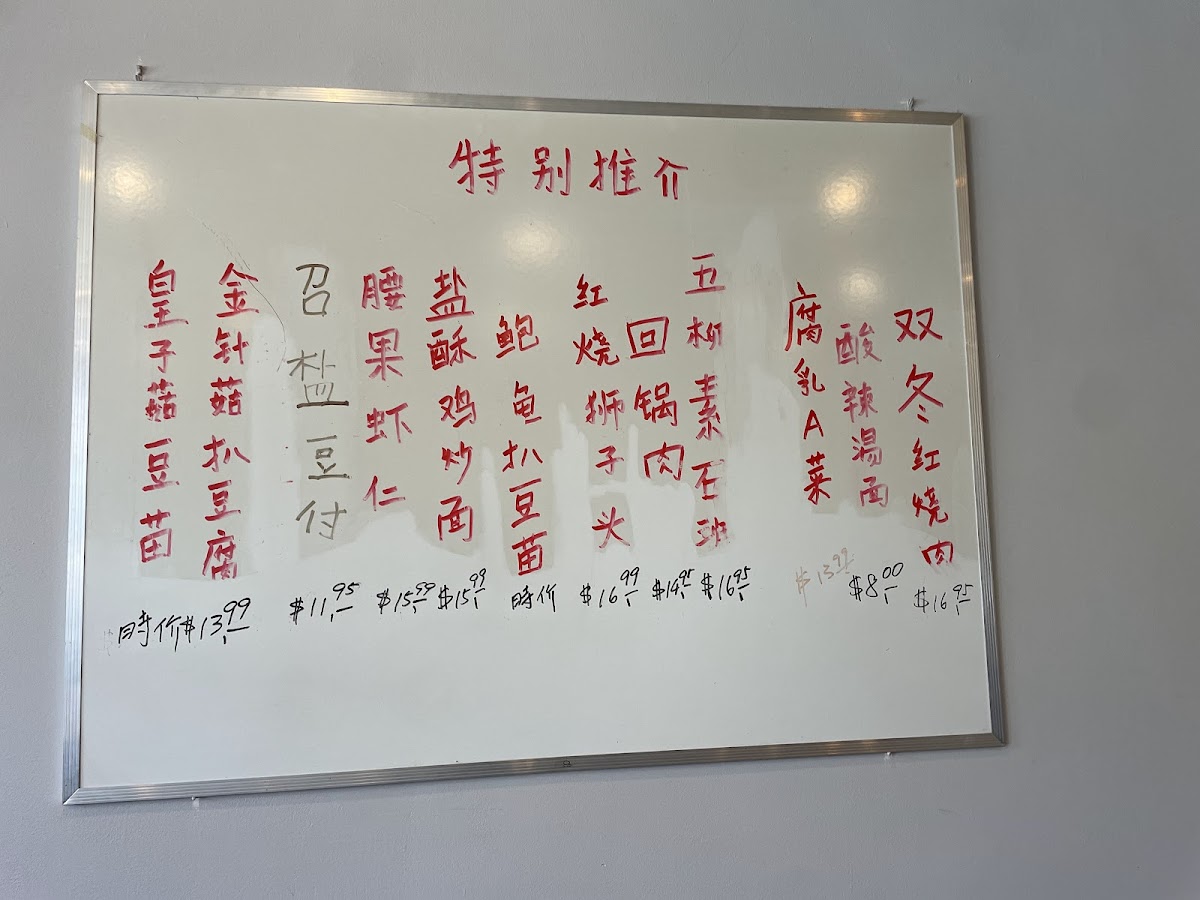 特别推介
双冬红烧肉
$16.95
酸辣湯面
$8.00
腐乳A菜
$13.99
五柳素石班
$16.95
回锅肉
$14.95
红烧狮子头
$16.99
鲍鱼扒豆苗
時价
盐酥鸡炒面
$15.99
腰果虾仁
$15.99
召盐豆付
$11.95
金针菇扒豆腐
$13.99
皇子菇豆苗
時价